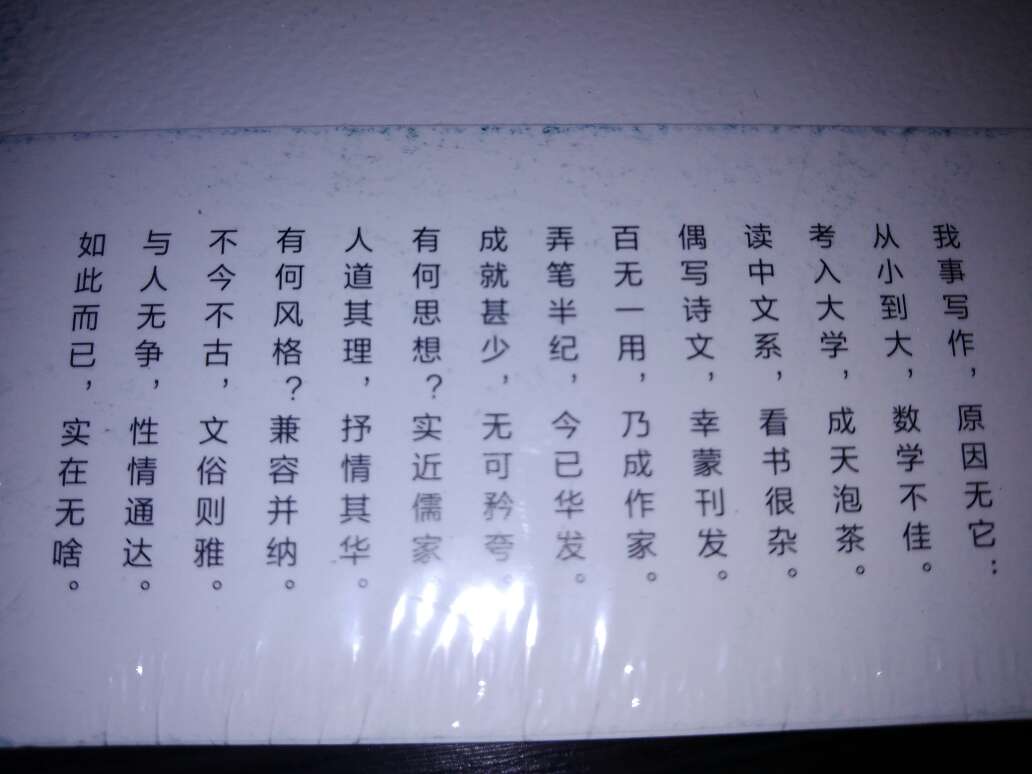 我事写作，原因无它：
从小到大，数学不佳。
考入大学，成天泡茶。
读中文系，看书很杂。
偶写诗文，幸蒙刊发。
百无一用，乃成作家。
弄笔半纪，今已华发。
成就甚少，无可矜夸。
有何思想？实近儒家。
人道其理，抒情其华。
有何风格？兼容并纳。
不今不古，文俗则雅。
与人无争，性情通达。
如此而已，实在无啥。